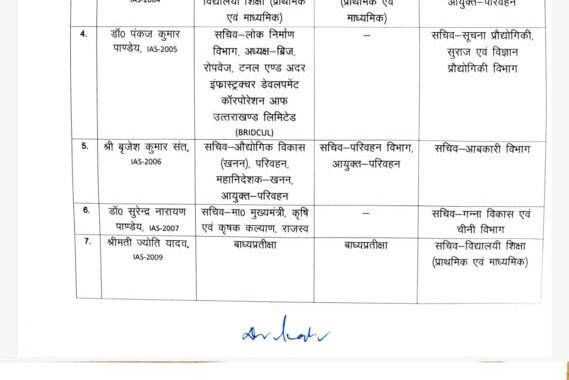 IAS-2004 विद्यालयी शिक्षा (प्राथमिक एवं माध्यमिक) (प्राथमिक एवं माध्यमिक) आयुक्त–परिवहन
4. डॉ0 पंकज कुमार सचिव–लोक निर्माण – सचिव–सूचना प्रौद्योगिकी,
पाण्डेय, IAS-2005 विभाग, अध्यक्ष–ब्रिज, सुराज एवं विज्ञान
रोपवेज, टनल एण्ड अदर प्रौद्योगिकी विभाग
इंफ्रास्ट्रक्चर डेवलपमेंट
कॉरपोरेशन आफ
उत्तराखण्ड लिमिटेड
(BRIDCUL)
5. श्री बृजेश कुमार संत, सचिव–औद्योगिक विकास सचिव–परिवहन विभाग, सचिव–आबकारी विभाग
IAS-2006 (खनन), परिवहन, आयुक्त–परिवहन
महानिदेशक–खनन,
आयुक्त–परिवहन
6. डॉ0 सुरेन्द्र नारायण सचिव–मा0 मुख्यमंत्री, कृषि – सचिव–गन्ना विकास एवं
पाण्डेय, IAS-2007 एवं कृषक कल्याण, राजस्व चीनी विभाग
7. श्रीमती ज्योति यादव, बाध्यप्रतीक्षा बाध्यप्रतीक्षा सचिव–विद्यालयी शिक्षा
IAS-2009 (प्राथमिक एवं माध्यमिक)